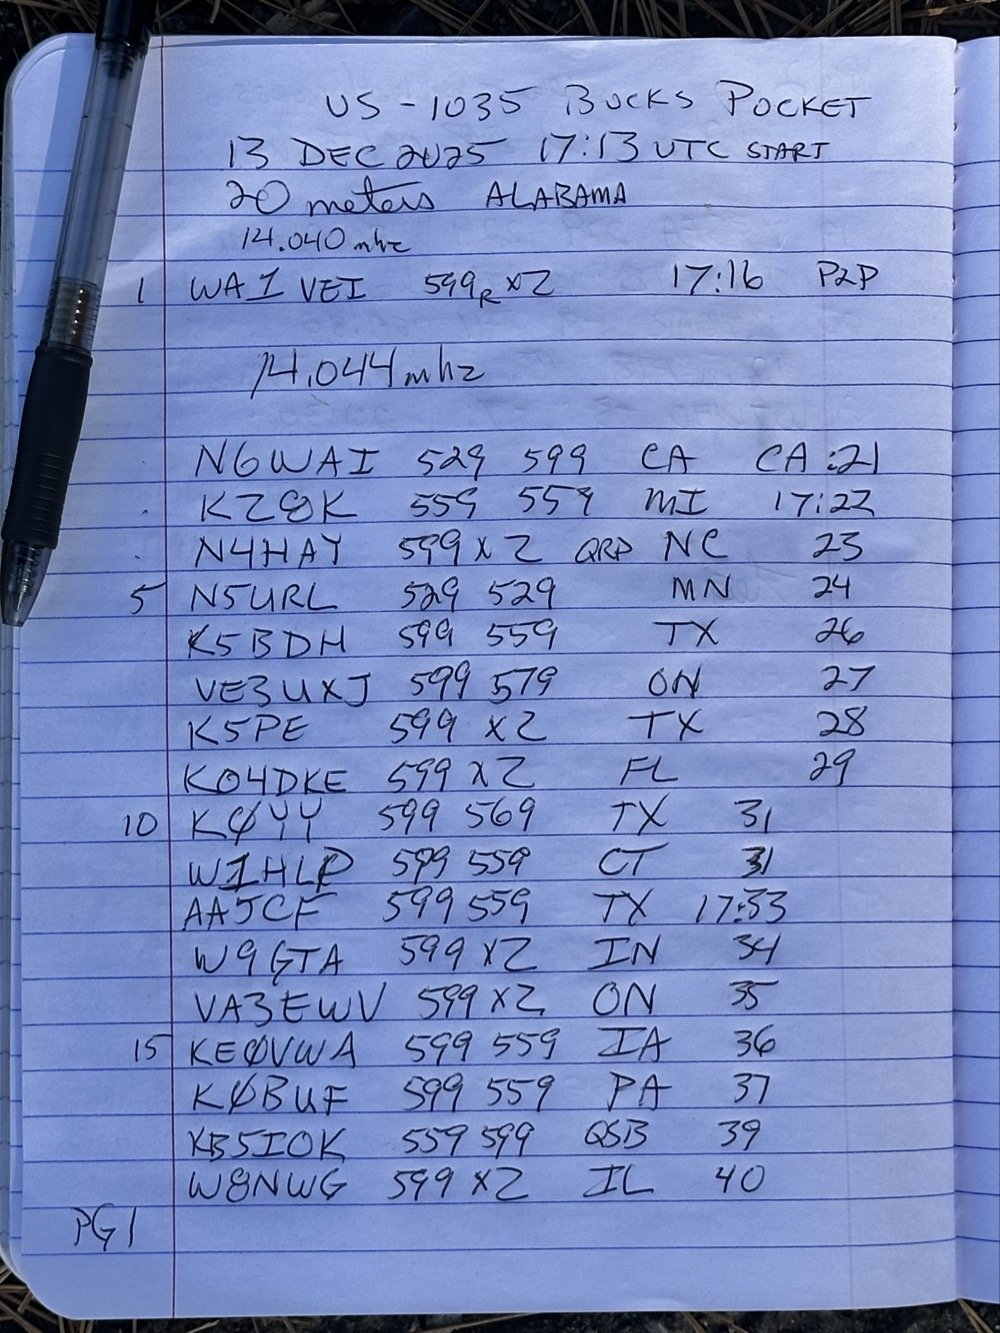 US-1035 BUCKS POCKET
13 DEC 2025 17:13 UTC START
20 meters ALABAMA
14.040 mhz
1 WA1VEI 599R X2 17:16 P2P
14.044 mhz
N6WAI 529 599 CA CA :21
KZ8K 559 559 MI 17:22
N4HAY 599 X 2 QRP NC 23
5 N5URL 529 529 MN 24
K5BDH 599 559 TX 26
VE3UXJ 599 579 ON 27
K5PE 599 X2 TX 28
KO4DKE 599 X 2 FL 29
10 KØYY 599 569 TX 31
W1HLP 599 559 CT 31
AA5CF 599 559 TX 17:33
W9GTA 599 X2 IN 34
VA3EWV 599 X2 ON 35
15 KEØVWA 599 559 IA 36
KØBUF 599 559 PA 37
KB5IOK 559 599 QSB 39
W8NWG 599 X2 IL 40
PG1